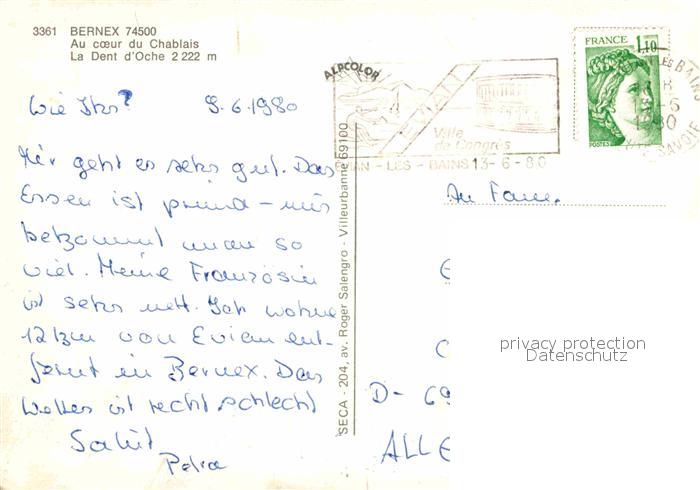 3361 BERNEX 74500
Au cœur du Chablais
La Dent d'Oche 2 222 m
ALPCOLOR
FRANCE 1,10
POSTES
EVIAN
Ville
de Congrès
EVIAN - LES - BAINS 13-6-80
LES BAINS
1980
SAVOIE
9.6.1980
Mir geht es sehr gut. Das
Essen ist prima - nur
bekommt man so
viel. Meine Französin
ist sehr nett. Ich wohne
12 km von Evian ent-
fernt in Bernex. Das
Wetter ist recht schlecht
Salut
Petra
SECA - 204, av. Roger Salengro - Villeurbanne 69100
An Fam.
D- 69
ALLE
privacy protection
Datenschutz